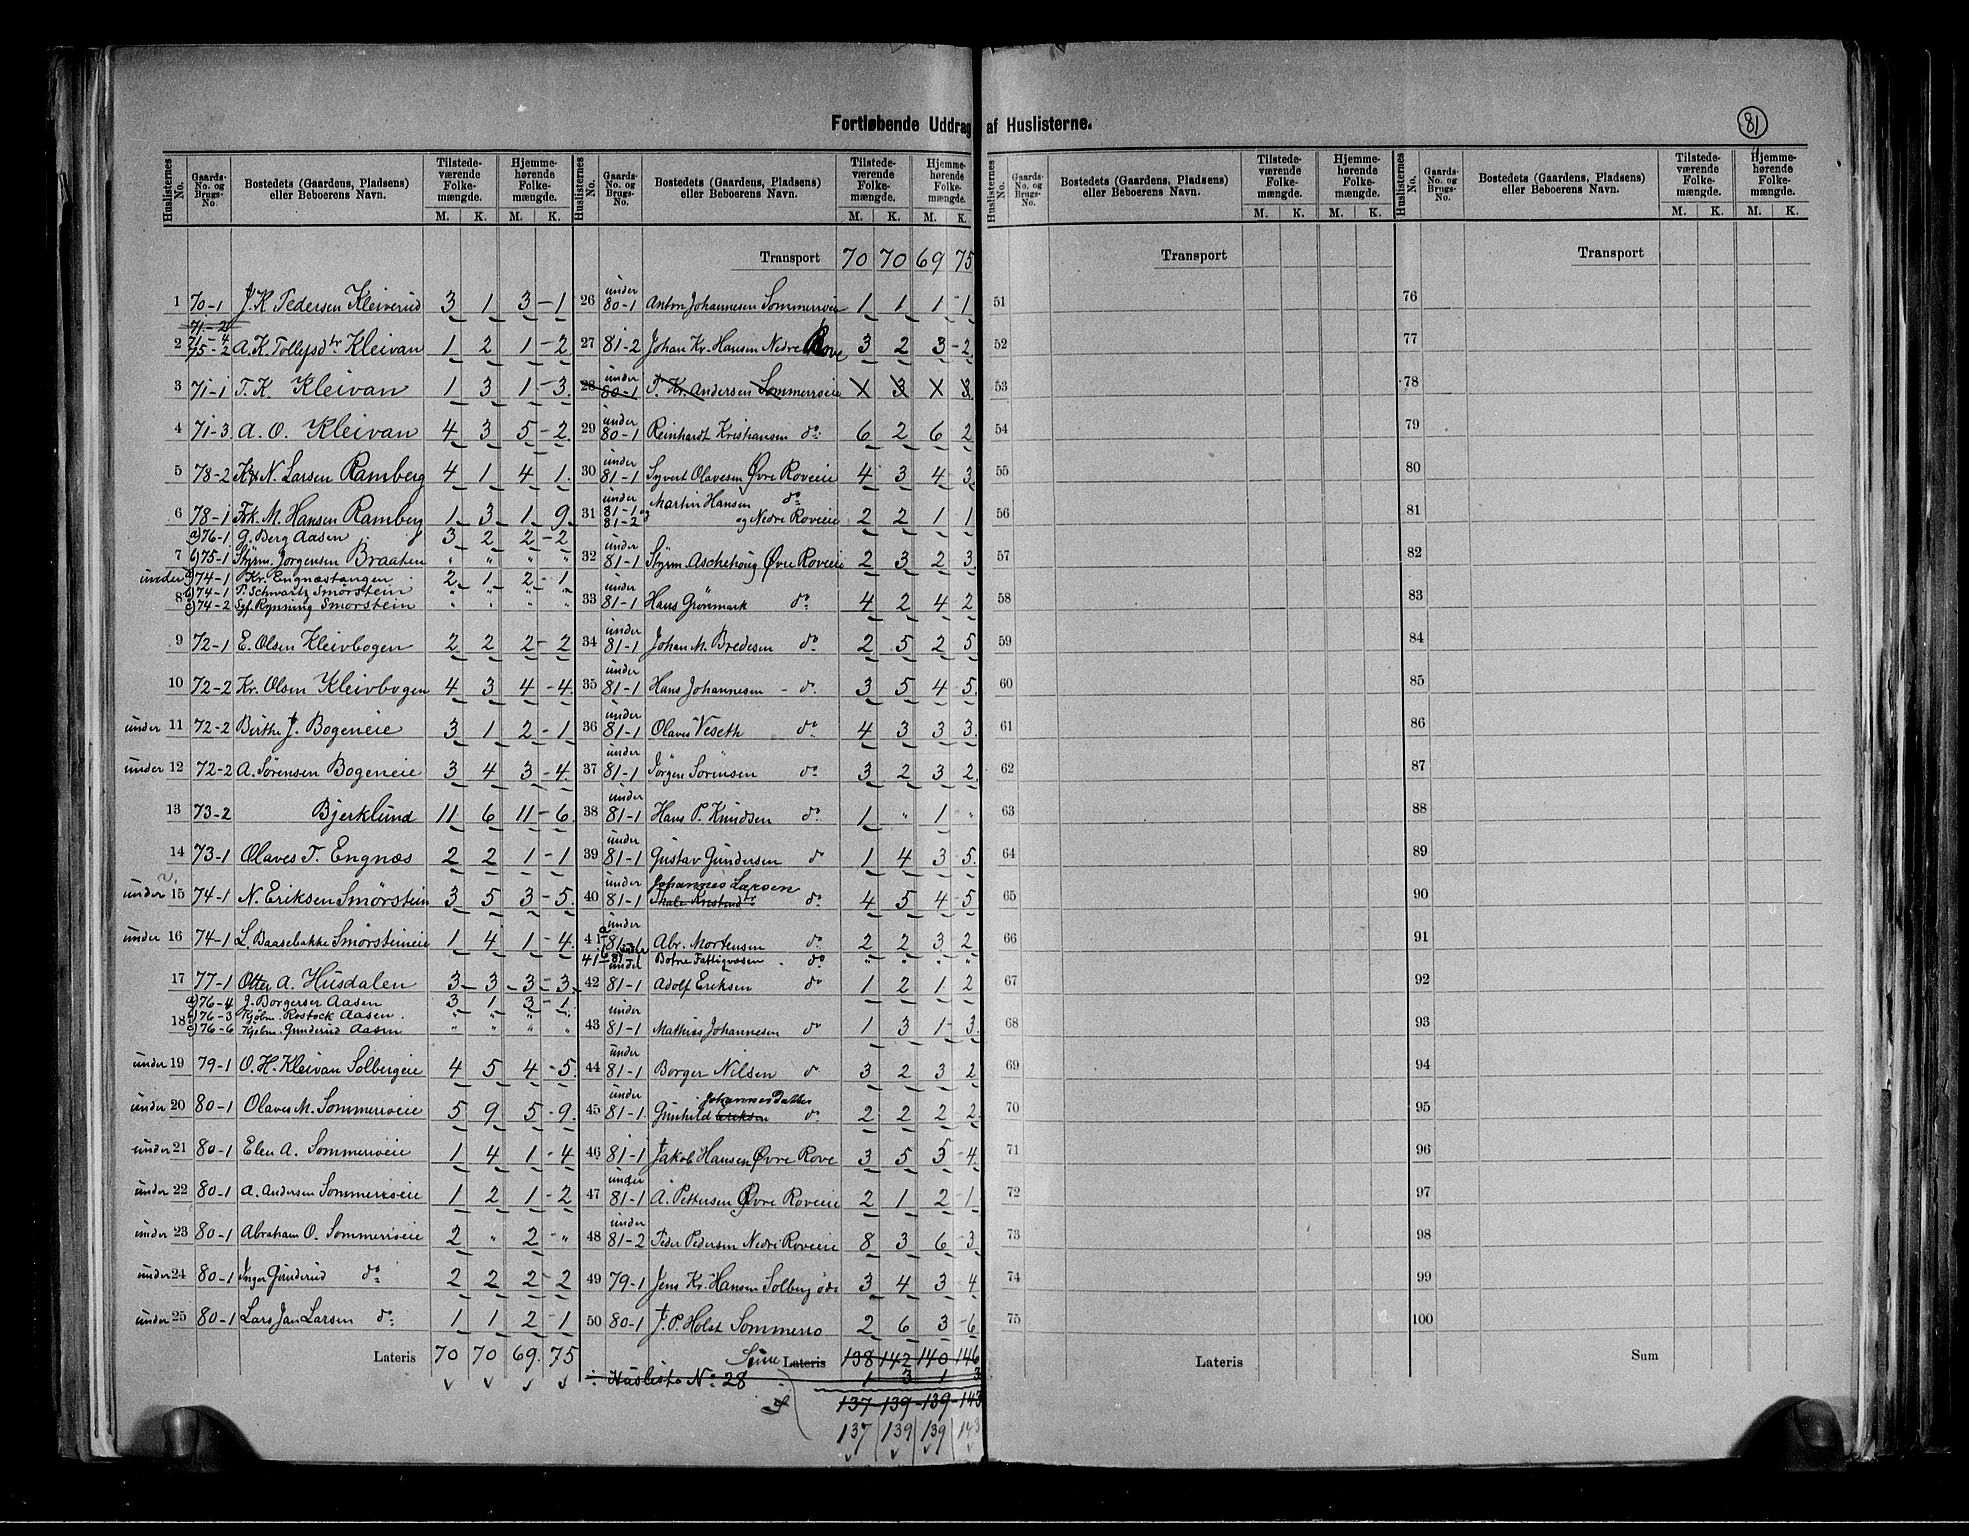 Fortløbende Uddrag af Huslisterne.
81
Huslisternes No. | Gaards-No. og Brugs-No. | Bostedets (Gaardens, Pladsens) eller Beboerens Navn. | Tilstedeværende Folkemængde. M. K. | Hjemmehørende Folkemængde. M. K.
1 70-1 J. K. Pedersen Kleiverud 3 1 3-1
71-2
2 71-4 75-2 A. K. Tollefsdtr Kleivan 1 2 1-2
3 71-1 T. K. Kleivan 1 3 1-3
4 71-3 A. O. Kleivan 4 3 5-2
5 78-2 N. Larsen Ramberg 4 1 4 1
6 78-1 Frk. M. Hansen Ramberg 1 3 1 9
a) 76-1 G. Berg Aasen 3 2 2-2
7 b) 75-1 Styrm. Jørgensen Braaten " " " "
under a) 74-1 Kr. Engnæstangen 2 1 2-1
8 b) 74-1 P. Schwartz Smørstein " " " "
c) 74-2 Sgf. Rynning Smørstein " " " "
9 72-1 E. Olsen Kleivbogen 2 2 2-2
10 72-2 Kr. Olsen Kleivbogen 4 3 4-4
under 11 72-2 Birthe J. Bogeneie 3 1 2-1
under 12 72-2 A. Sørensen Bogeneie 3 4 3-4
13 73-2 Bjerklund 11 6 11-6
14 73-1 Olaves T. Engnæs 2 2 1-1
under 15 74-1 N. Eriksen Smørstein 3 5 3-5
under 16 74-1 L. Baasebakke Smørsteineie 1 4 1-4
17 77-1 Otter A. Husdalen 3-3-3-3
a) 76-4 J. Borgersen Aasen 3 1 3-1
18 b) 76-3 Kjøbm. Rostock Aasen " " " "
c) 76-6 Kjøbm. Gunderud Aasen " " " "
under 19 79-1 O. H. Kleivan Solbergeie 4 5 4-5
under 20 80-1 Olaves M. Sommerroeie 5 9 5-9
under 21 80-1 Elen A. Sommeroeie 1 4 1-4
under 22 80-1 A. Andersen Sommerroeie 1 2 1-2
under 23 80-1 Abraham O. Sommerroeie 2 " 2-"
under 24 80-1 Inger Gunderud do 2 2 2-2
under 25 80-1 Lars Jan Larsen do 1 1 2-1
Lateris 70 70 69 75
Huslisternes No. | Gaards-No. og Brugs-No. | Bostedets (Gaardens, Pladsens) eller Beboerens Navn. | Tilstedeværende Folkemængde. M. K. | Hjemmehørende Folkemængde. M. K.
Transport 70 70 69 75
26 under 80-1 Anton Johannesen Sommerroeie 1 1 1-1
27 81-2 Johan Kr. Hansen Nedre Rove 3 2 3-2
28 under 80-1 T. Kr. Andersen Sommerroeie X 3 X 3
29 under 80-1 Reinhardt Kristiansen do 6 2 6 2
30 under 81-1 Syvert Olavesen Øvre Roveeie 4 3 4-3
31 under 81-1 og 81-2 Martin Hansen do
og Nedre Roveeie 2 2 1 1
32 under 81-1 Styrm. Aschehoug Øvre Roveeie 2 3 2 3
33 under 81-1 Hans Grønmark do 4 2 4 2
34 under 81-1 Johan M. Bredesen do 2 5 2 5
35 under 81-1 Hans Johannesen - do 3 5 4 5
36 under 81-1 Olaves Veseth do 4 3 3 3
37 under 81-1 Jörgen Sörensen do 3 2 3 2
38 under 81-1 Hans P. Knudsen do 1 " 1 "
39 under 81-1 Gustav Gundersen do 1 4 3 5
40 under 81-1 Johannes Larsen do 4 5 4-5
41 a under 81-1 Abr. Mortensen do 2 2 3 2
41 b under 81-1 Botne Fattigvæsen do " " " "
42 under 81-1 Adolf Eriksen do 1 2 1 2
43 under 81-1 Mathias Johannesen do 1 3 1-3
44 under 81-1 Borger Nilsen do 3 2 3 2
Johannesdatter
45 under 81-1 Gunhild Eriksen do 2 2 2 2
46 81-1 Jakob Hansen Øvre Rove 3 5 5-4
47 under 81-1 A. Pettersen Øvre Roveeie 2 1 2-1
48 under 81-2 Peder Pedersen Nedre Roveeie 8 3 6-3
49 79-1 Jens Kr. Hansen Solberg øde 3 4 3-4
50 80-1 J. P. Holst Sommerro 2 6 3-6
Sum Lateris 138 142 140 146
÷ Husliste No 28 1 3 1 3
137-139-139-143
137 139 139 143
Huslisternes No. | Gaards-No. og Brugs-No. | Bostedets (Gaardens, Pladsens) eller Beboerens Navn. | Tilstedeværende Folkemængde. M. K. | Hjemmehørende Folkemængde. M. K.
Transport
51
52
53
54
55
56
57
58
59
60
61
62
63
64
65
66
67
68
69
70
71
72
73
74
75
Lateris
Huslisternes No. | Gaards-No. og Brugs-No. | Bostedets (Gaardens, Pladsens) eller Beboerens Navn. | Tilstedeværende Folkemængde. M. K. | Hjemmehørende Folkemængde. M. K.
Transport
76
77
78
79
80
81
82
83
84
85
86
87
88
89
90
91
92
93
94
95
96
97
98
99
100
Sum